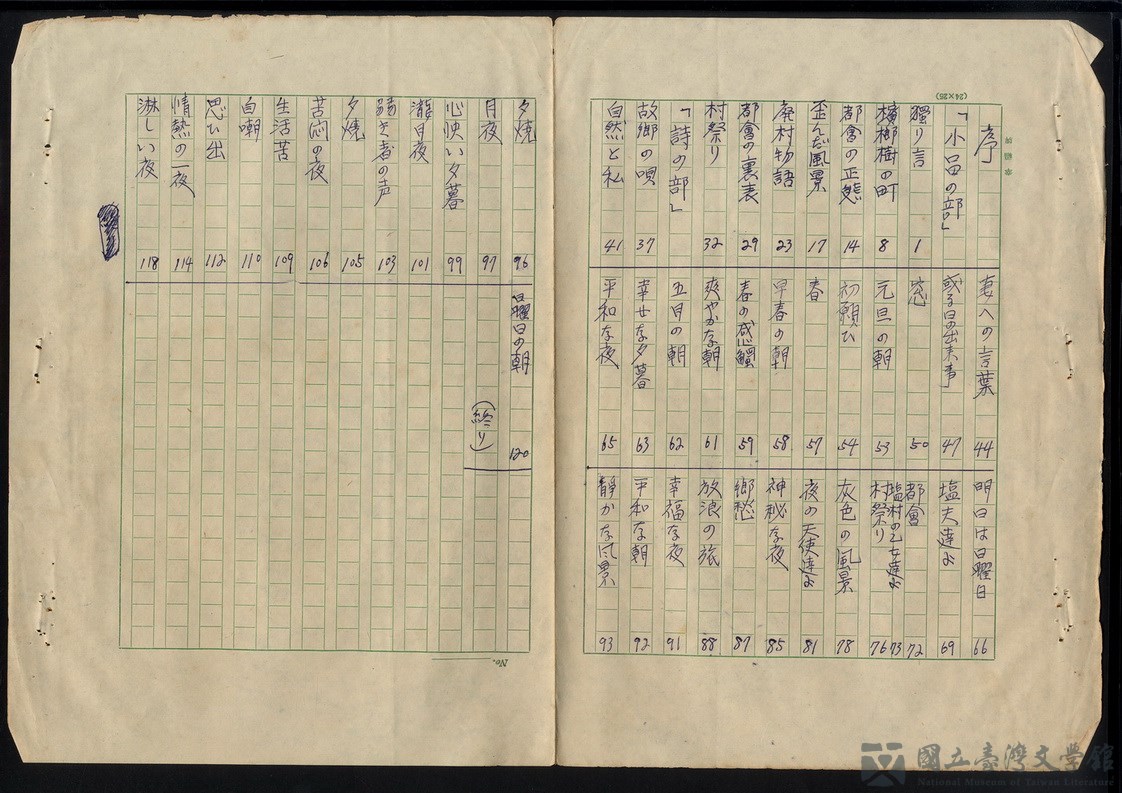 序
「小品の部」
獨り言 1
檳榔樹の町 8
都會の正態 14
歪んだ風景 17
廃村物語 23
都會の裏表 29
村祭り 32
「詩の部」
故郷の唄 37
自然と私 41
妻への言葉 44
或る日の出来事 47
窓 50
元旦の朝 53
初願ひ 54
春 57
早春の朝 58
春の感觸 59
爽やかな朝 61
五月の朝 62
幸せな夕暮 63
平和な夜 65
明日は日曜日 66
塩夫達よ 69
都會 72
塩村の乙女達よ 73
村祭り 76
灰色の風景 78
夜の天使達よ 81
神秘な夜 85
郷愁 87
放浪の旅 88
幸福な夜 91
平和な朝 92
静かな風景 93
夕焼 96
月夜 97
心快い夕暮 99
朧月夜 101
弱き者の声 103
夕焼 105
苦悶の夜 106
生活苦 109
自嘲 110
思ひ出 112
情熱の一夜 114
淋しい夜 118
日曜日の朝 120
(終り)
(24×25)
No.
國立臺灣文學館
National Museum of Taiwan Literature